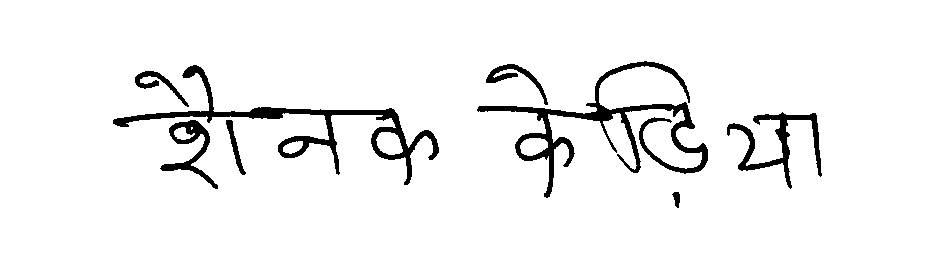 शौनक केड़िया